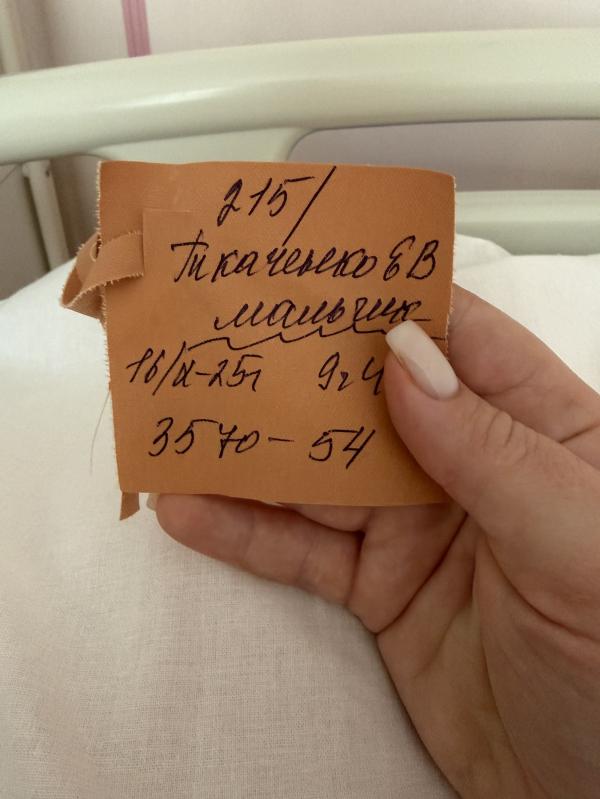 215/
Ткаченко ЕВ
мальчик
16/X-25г 9ч4
3570-54